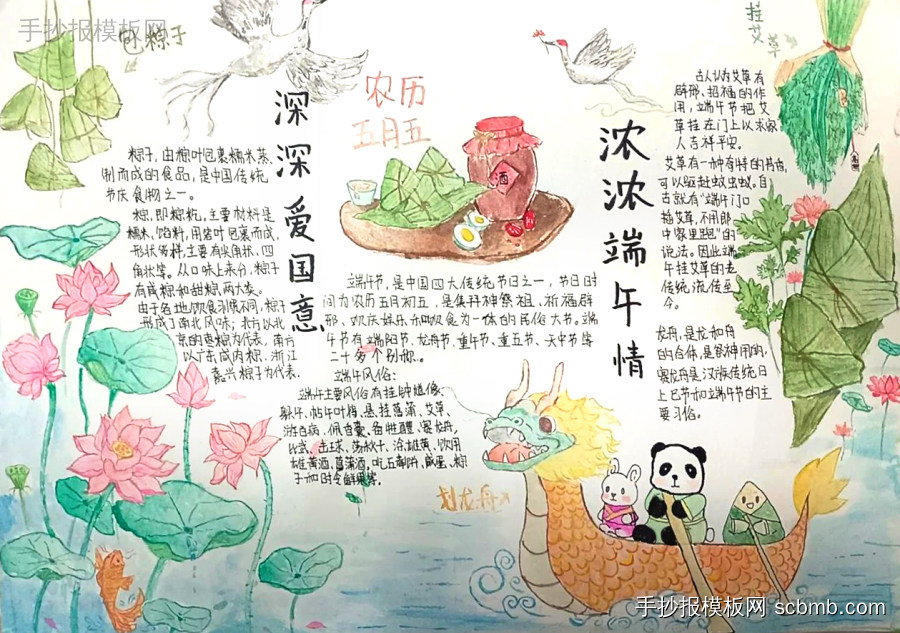 手抄报模板网
包粽子
挂艾草
深深爱国意
农历
五月五
浓浓端午情
酒
粽子,由粽叶包裹糯米蒸
制而成的食品,是中国传统
节庆食物之一。
粽,即粽籺,主要材料是
糯米、馅料,用箬叶包裹而成,
形状多样,主要有尖角状、四
角状等。从口味上来分,粽子
有咸粽和甜粽两大类。
由于各地饮食习惯不同,粽子
形成了南北风味;北方以北
京的枣粽为代表,南方
以广东咸肉粽、浙江
嘉兴粽子为代表。
端午节,是中国四大传统节日之一,节日时
间为农历五月初五,是集拜神祭祖、祈福辟
邪、欢庆娱乐和饮食为一体的民俗大节。端
午节有端阳节、龙舟节、重午节、重五节、天中节等
二十多个别称。
端午风俗:
端午主要风俗有挂钟馗像、
躲午、帖午叶符、悬挂菖蒲、艾草、
游百病、佩香囊、备牲醴、赛龙舟、
比武、击球、荡秋千、涂雄黄、饮用
雄黄酒、菖蒲酒、吃五毒饼、咸蛋、粽
子和时令鲜果等。
古人认为艾草有
辟邪、招福的作
用,端午节把艾
草挂在门上以求家
人吉祥平安。
艾草有一种奇特的香味,
可以驱赶蚊虫蚁。自
古就有“端午门口
插艾草,不用郎
中家里跑”的
说法。因此端
午挂艾草的老
传统流传至
今。
龙舟,是龙和舟
的合体,是敬神用的,
赛龙舟是汉族传统日
上巳节和端午节的主
要习俗。
划龙舟
手抄报模板网 scbmb.com